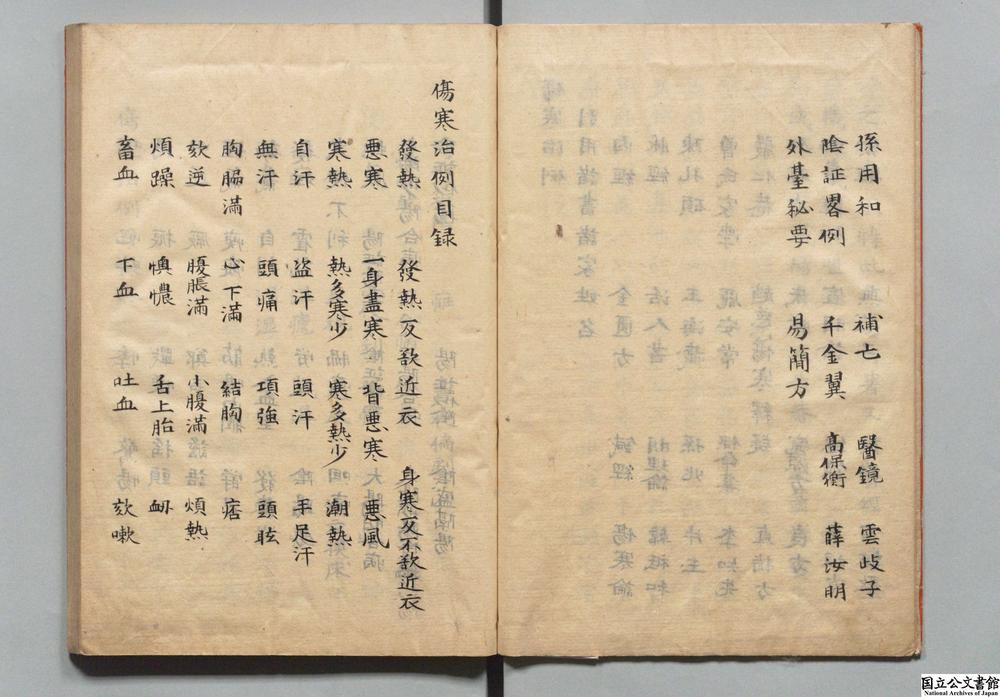 孫用和 補亡 醫鏡 雲歧子
陰証畧例 千金翼 高保衡 薛汝明
外臺秘要 易簡方
傷寒治例目録
發熱 發熱反欲近衣 身寒反不欲近衣
悪寒 一身盡寒 背悪寒 悪風
寒熱 熱多寒少 寒多熱少 潮熱
自汗 盗汗 頭汗 手足汗
無汗 頭痛 項強 頭眩
胸膈滿 心下滿 結胸 痞
欬逆 腹脹滿 小腹滿 煩熱
煩躁 懊憹 舌上胎 衂
畜血 下血 吐血 欬嗽
国立公文書館
National Archives of Japan